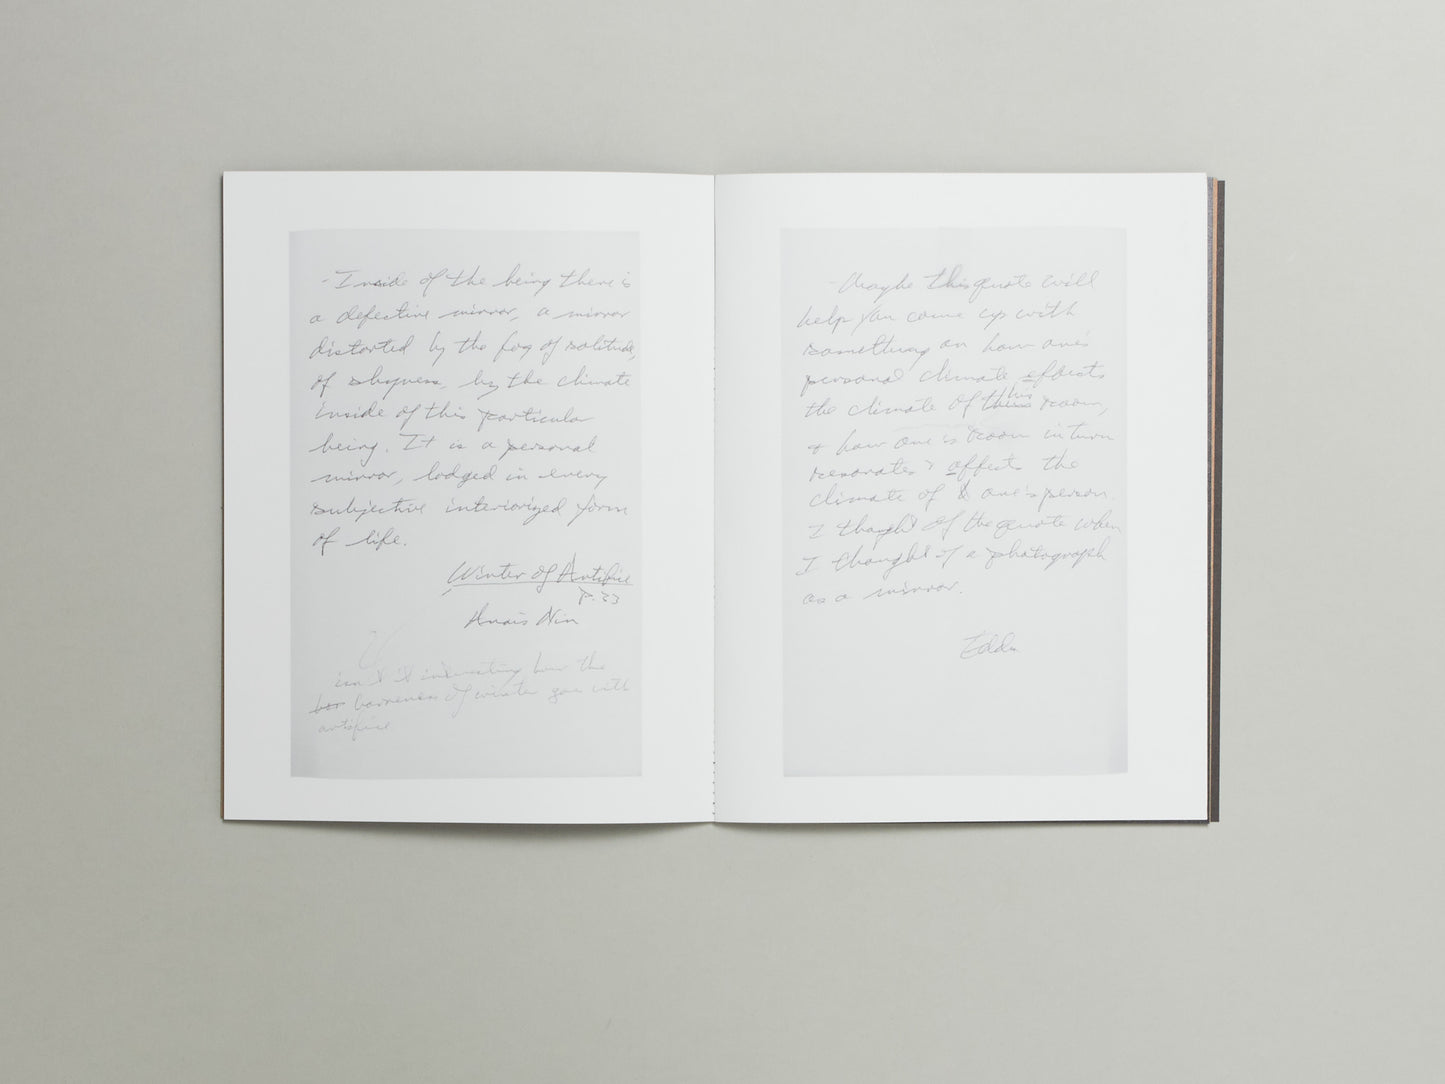 - Inside of the being there is
a defective mirror, a mirror
distorted by the fog of solitude,
of shyness, by the climate
inside of this particular
being. It is a personal
mirror, lodged in every
subjective interiorized form
of life.
Winter of Artifice
P. 33
Anais Nin
isn't it interesting how the
bar barreness of winter goes with
artifice
- Maybe this quote will
help you come up with
something on how one's
personal climate effects
the climate of his room,
& how one's room in turn
resonates & affects the
climate of one's person.
I thought of the quote when
I thought of a photograph
as a mirror.